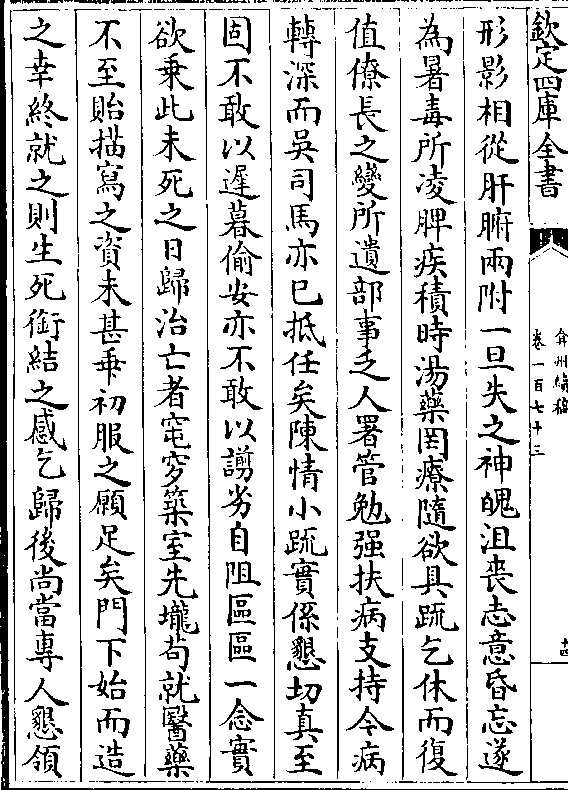 欽定四庫全書
弇州續稿
卷一百七十三
十四
形影相從肝腑兩附一旦失之神魄沮喪志意昏忘遂
為暑毒所凌脾疾積時湯藥罔療隨欲具疏乞休而復
值僚長之變所遺部事乏人署管勉强扶病支持今病
轉深而吳司馬亦已抵任矣陳情小疏實係懇切真至
固不敢以遲暮偷安亦不敢以謭劣自阻區區一念實
欲乗此未死之日歸治亡者窀穸築室先壠苟就醫藥
不至貽描寫之資未甚乖初服之願足矣門下始而造
之幸終就之則生死銜結之感乞歸後尚當專人懇領